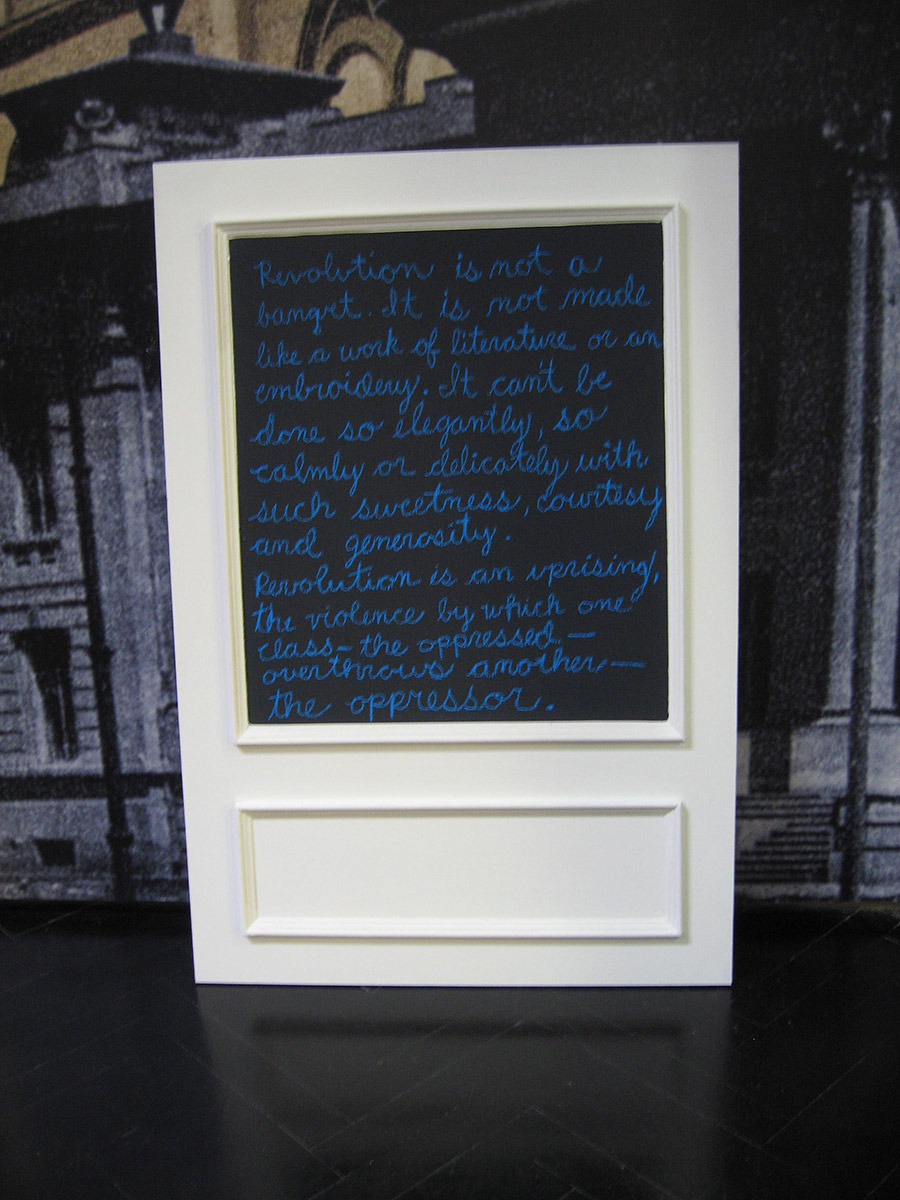 Revolution is not a
banqvt. It is not made
like a work of literature or an
embroidery. It can't be
done so elegantly, so
calmly or delicately with
such sweetness, courtesy
and generosity.
Revolution is an uprising,
the violence by which one
class - the oppressed -
overthrows another -
the oppressor.